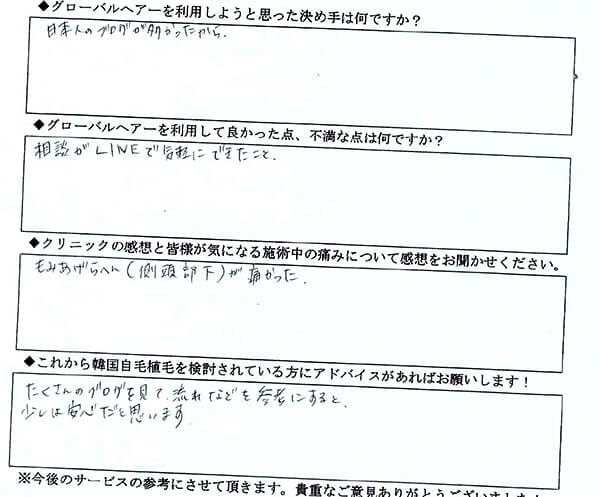 ◆グローバルヘアーを利用しようと思った決め手は何ですか？
日本人のブログが多かったから.
◆グローバルヘアーを利用して良かった点、不満な点は何ですか？
相談がLINEで気軽にできたこと.
◆クリニックの感想と皆様が気になる施術中の痛みについて感想をお聞かせください。
もみあげらへん(側頭部下)が痛かった.
◆これから韓国自毛植毛を検討されている方にアドバイスがあればお願いします！
たくさんのブログを見て、流れなどを参考にすると、
少しは安心だと思います
※今後のサービスの参考にさせて頂きます。貴重なご意見ありがとうございました